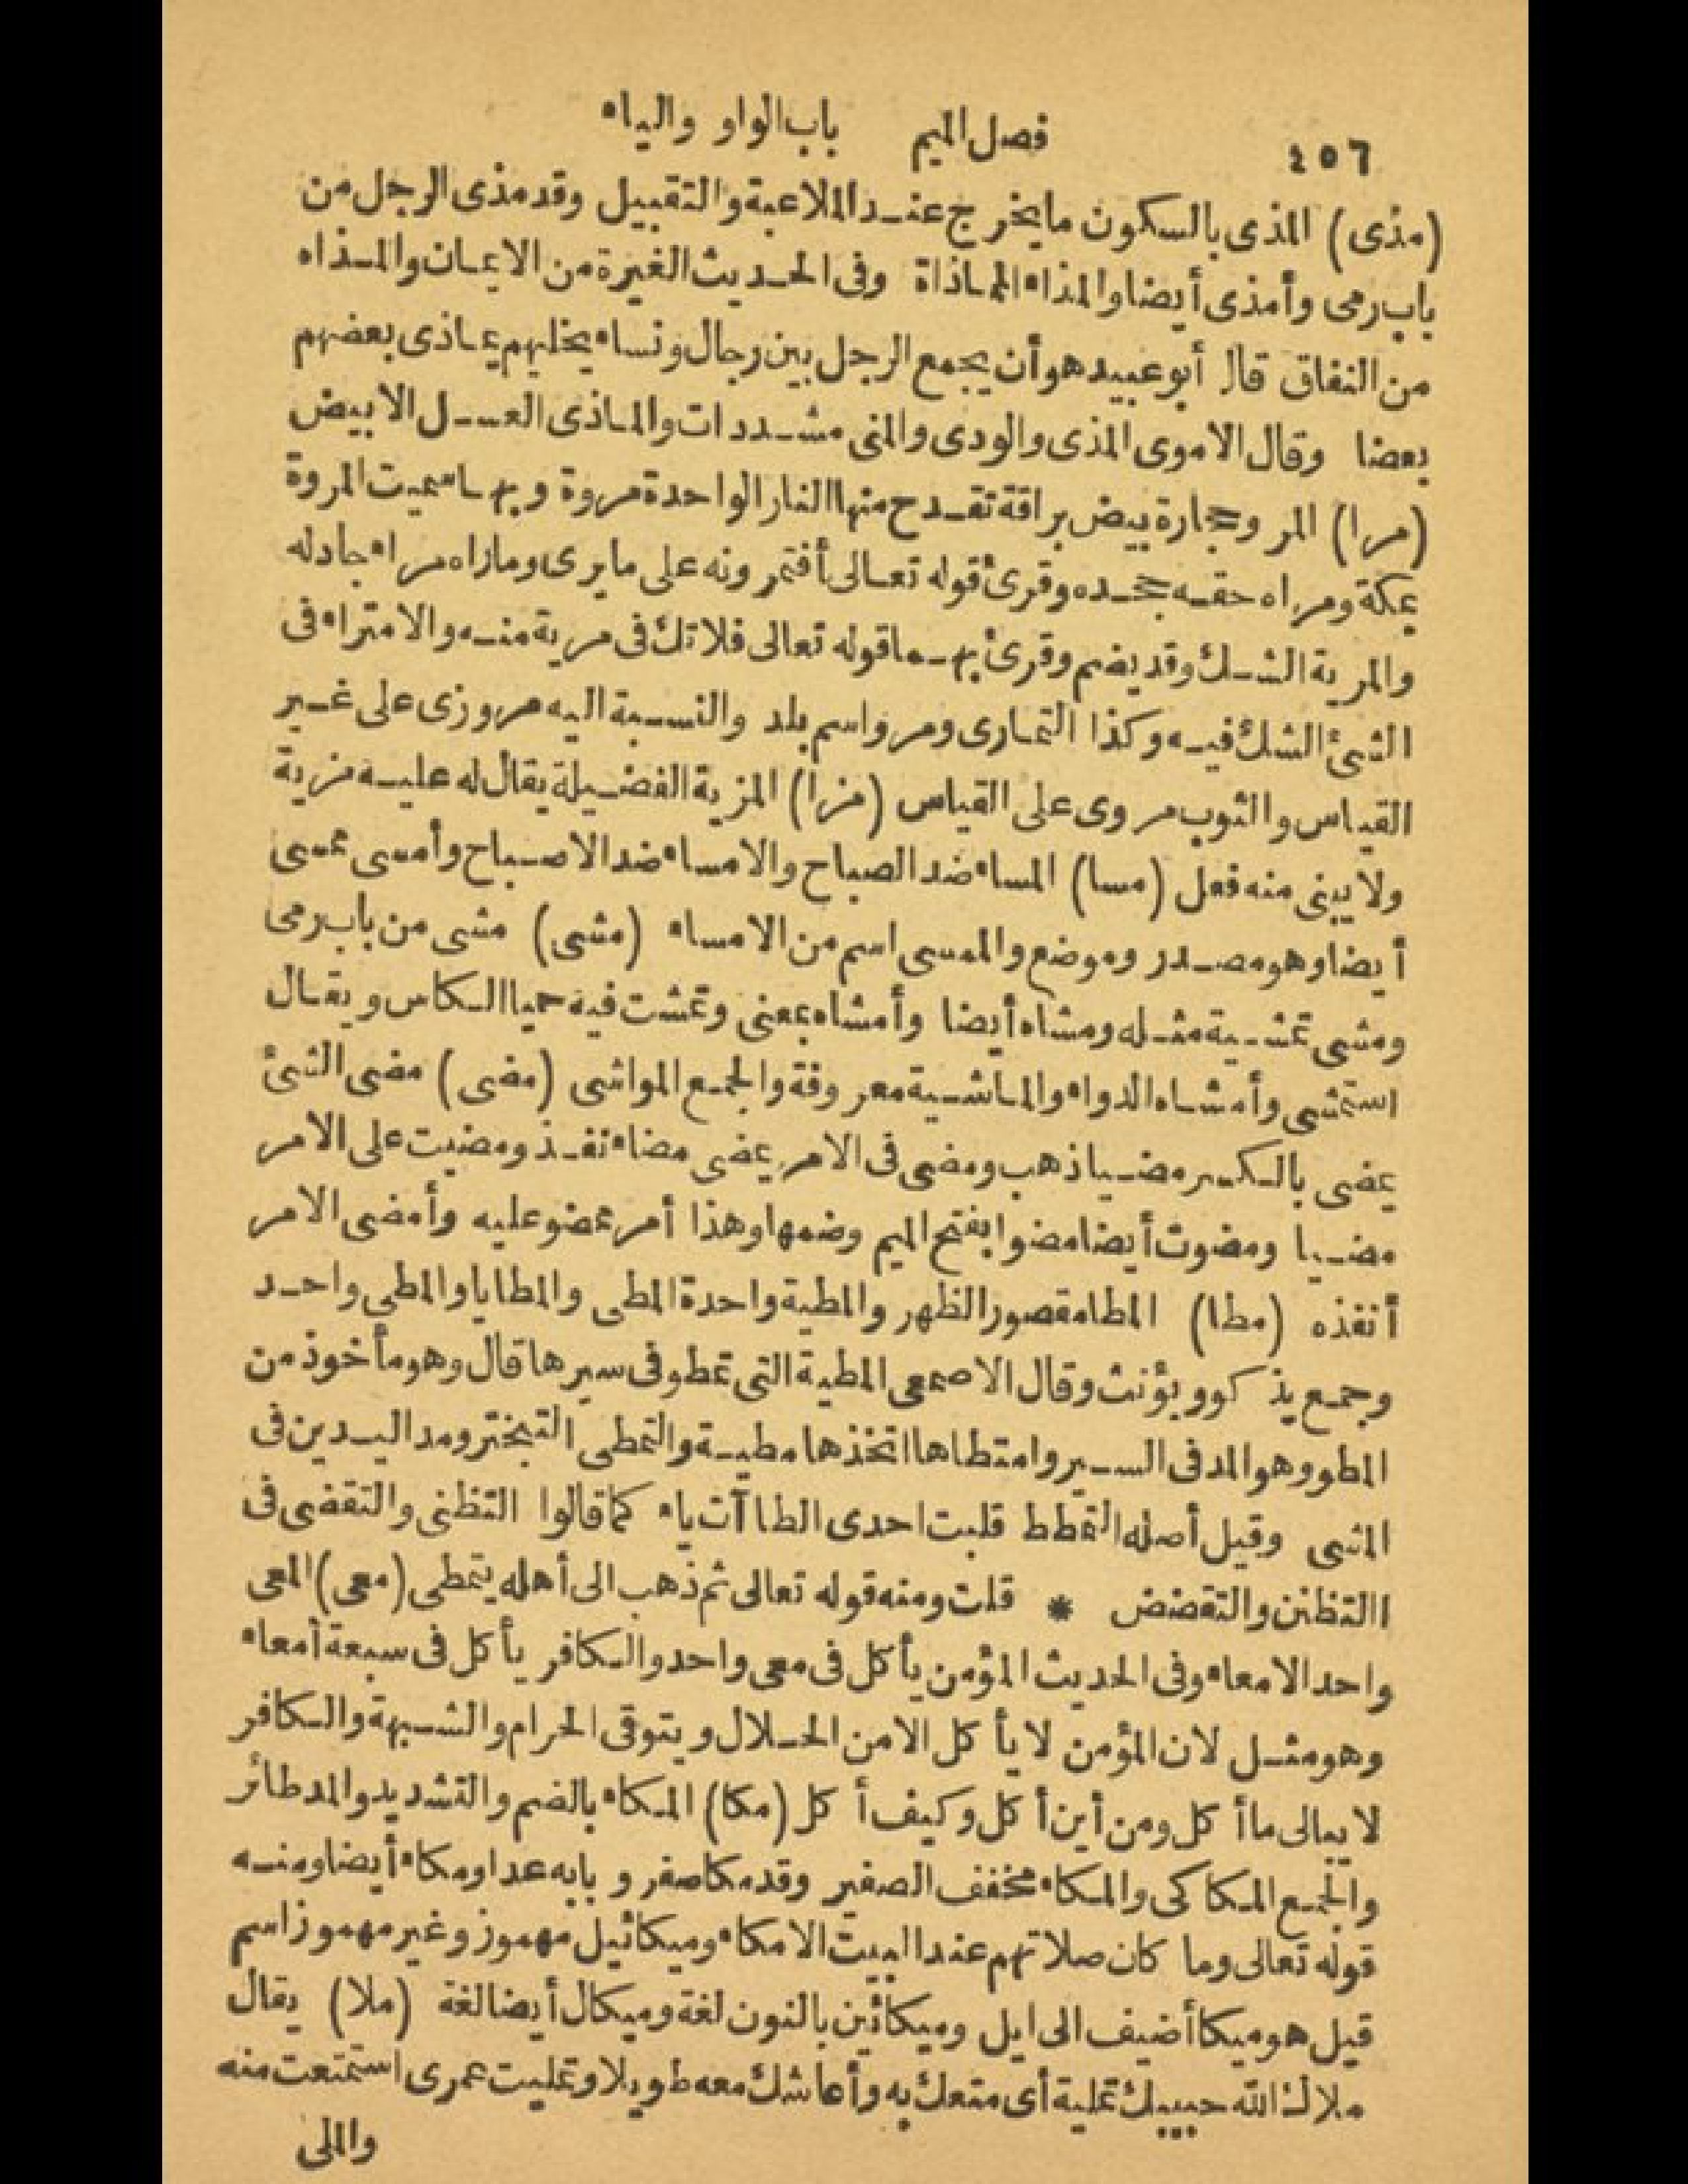 ٤٥٦ فصل الميم باب الواو والياء
(مذى) المذى بالسكون مايخرج عند الملاعبة والتقبيل وقد مذى الرجل من
باب رمى وأمذى أيضا والمذاء المماذاة وفى الحديث الغيرة من الايمان والمذاء
من النفاق قال أبو عبيد هو أن يجمع الرجل بين رجال ونساء يخليهم يماذى بعضهم
بعضا وقال الاموى المذى والودى والمنى مشددات والماذى العسل الابيض
(مرا) المرو حجارة بيض براقة تقدح منها النار الواحدة مروة وبها سميت المروة
بمكة ومراه حقه جحده وقرئ قوله تعالى أفتمرونه على مايرى وماراه مراء جادله
والمرية الشك وقد يضم وقرئ بهما قوله تعالى فلاتك فى مرية منه والامتراء فى
الشئ الشك فيه وكذا التمارى ومرو اسم بلد والنسبة اليه مروزى على غير
القياس والثوب مروى على القياس (مزا) المزية الفضيلة يقال له عليه مزية
ولا يبنى منه فعل (مسا) المساء ضد الصباح والامساء ضد الاصباح وأمسى ممسى
أيضا وهو مصدر وموضع والممسى اسم من الامساء (مشى) مشى من باب رمى
ومشى تمشية مثله ومشاه أيضا وأمشاه بمعنى وتمشت فيه حميا الكاس ويقال
استمشى وأمشاه الدواء والماشية معروفة والجمع المواشى (مضى) مضى الشئ
يمضى بالكسر مضيا ذهب ومضى فى الامر يمضى مضاء نفذ ومضيت على الامر
مضيا ومضوت أيضا مضوا بفتح الميم وضمها وهذا أمر ممضو عليه وأمضى الامر
أنفذه (مطا) المطا مقصور الظهر والمطية واحدة المطى والمطايا والمطى واحد
وجمع يذكر ويؤنث وقال الاصمعى المطية التى تمطو فى سيرها قال وهو مأخوذ من
المطو وهو المد فى السير وامتطاها اتخذها مطية والتمطى التبختر ومد اليدين فى
المشى وقيل أصله التمطط قلبت احدى الطاآت ياء كما قالوا التظنى والتقضى فى
التظنن والتقضض * قلت ومنه قوله تعالى ثم ذهب الى أهله يتمطى (معى) المعى
واحد الامعاء وفى الحديث المؤمن يأكل فى معى واحد والكافر يأكل فى سبعة أمعاء
وهو مثل لان المؤمن لا يأكل الا من الحلال ويتوقى الحرام والشبهة والكافر
لا يبالى ما أكل ومن أين أكل وكيف أكل (مكا) المكاء بالضم والتشديد والمد طائر
والجمع المكاكى والمكاء مخفف الصفير وقد مكا صفر وبابه عدا ومكاء أيضا ومنه
قوله تعالى وما كان صلاتهم عند البيت الا مكاء وميكائيل مهموز وغير مهموز اسم
قيل هو ميكا أضيف الى ايل وميكائين بالنون لغة وميكال أيضا لغة (ملا) يقال
ملاك الله حبيبك تملية أى متعك به وأعاشك معه طويلا وتمليت عمرى استمتعت منه
والملى